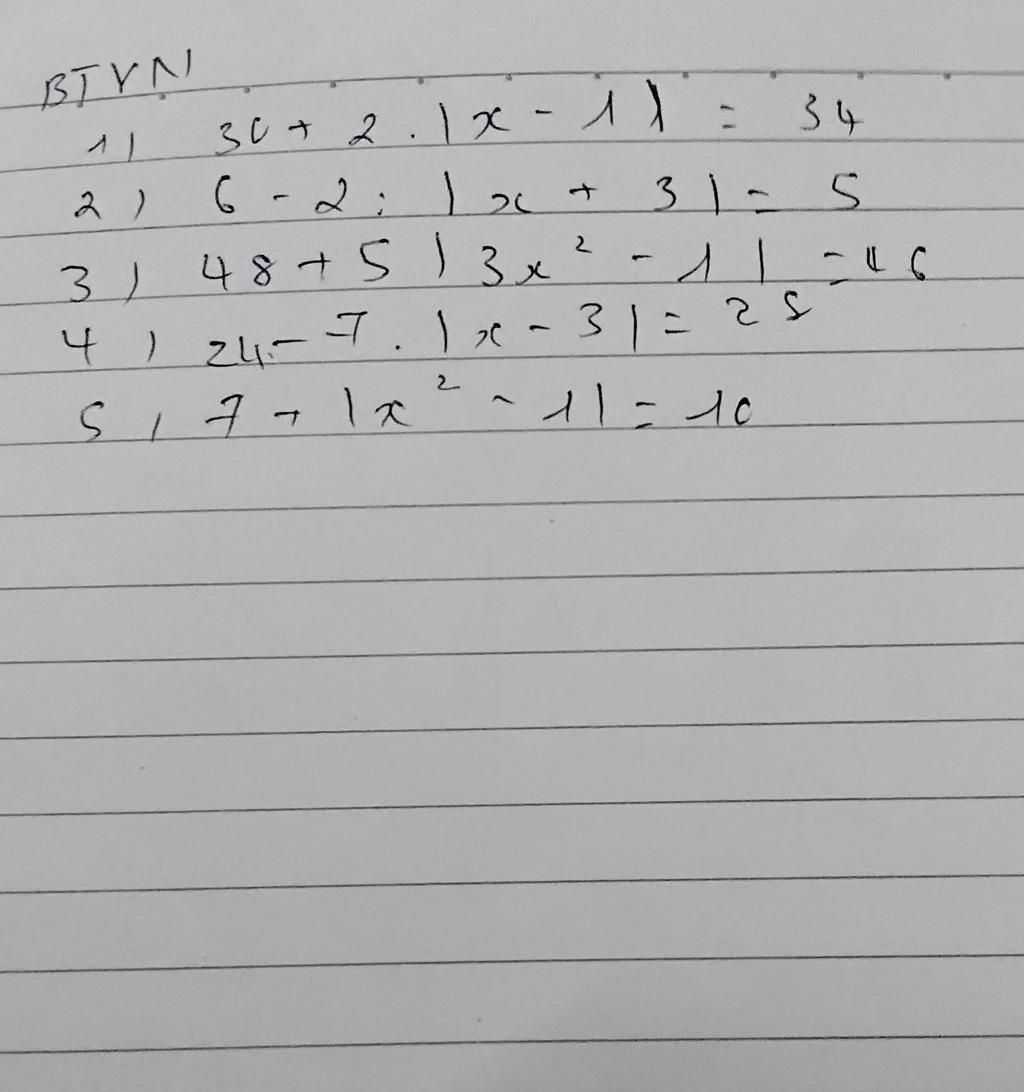 BTVN
1) 30 + 2 . |x - 1| = 34
2) 6 - 2 : |x + 3| = 5
3) 48 + 5 |3x² - 1| = 46
4) 24 - 7 . |x - 3| = 25
5, 7 + |x² - 1| = 10